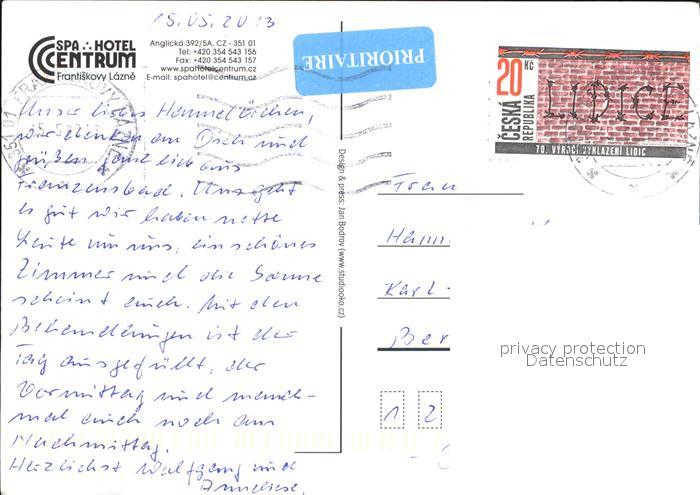 15.05.2013
SPA HOTEL
CENTRUM
Františkovy Lázně
Anglická 392/5A, CZ - 351 01
Tel: +420 354 543 156
Fax: +420 354 543 157
www.spahotelcentrum.cz
E-mail: spahotel@centrum.cz
PRIORITAIRE
20 Kč
ČESKÁ
REPUBLIKA
LIDICE
70. VÝROČÍ VYHLAZENÍ LIDIC
Unser liebes
wir denken an Dich und
grüßen ganz lieb aus
Franzensbad. Uns geht
es gut wir haben nette
Leute um uns, ein schönes
Zimmer und die Sonne
scheint auch. Mit den
Behandlungen ist der
Tag ausgefüllt, der
Vormittag und manch-
mal auch noch am
Nachmittag.
Herzlichst Wolfgang und
Anneliese.
Design & press: Jan Bodrov (www.studiooko.cz)
Frau
Hann
Karl-
Ber
privacy protection
Datenschutz
1 2